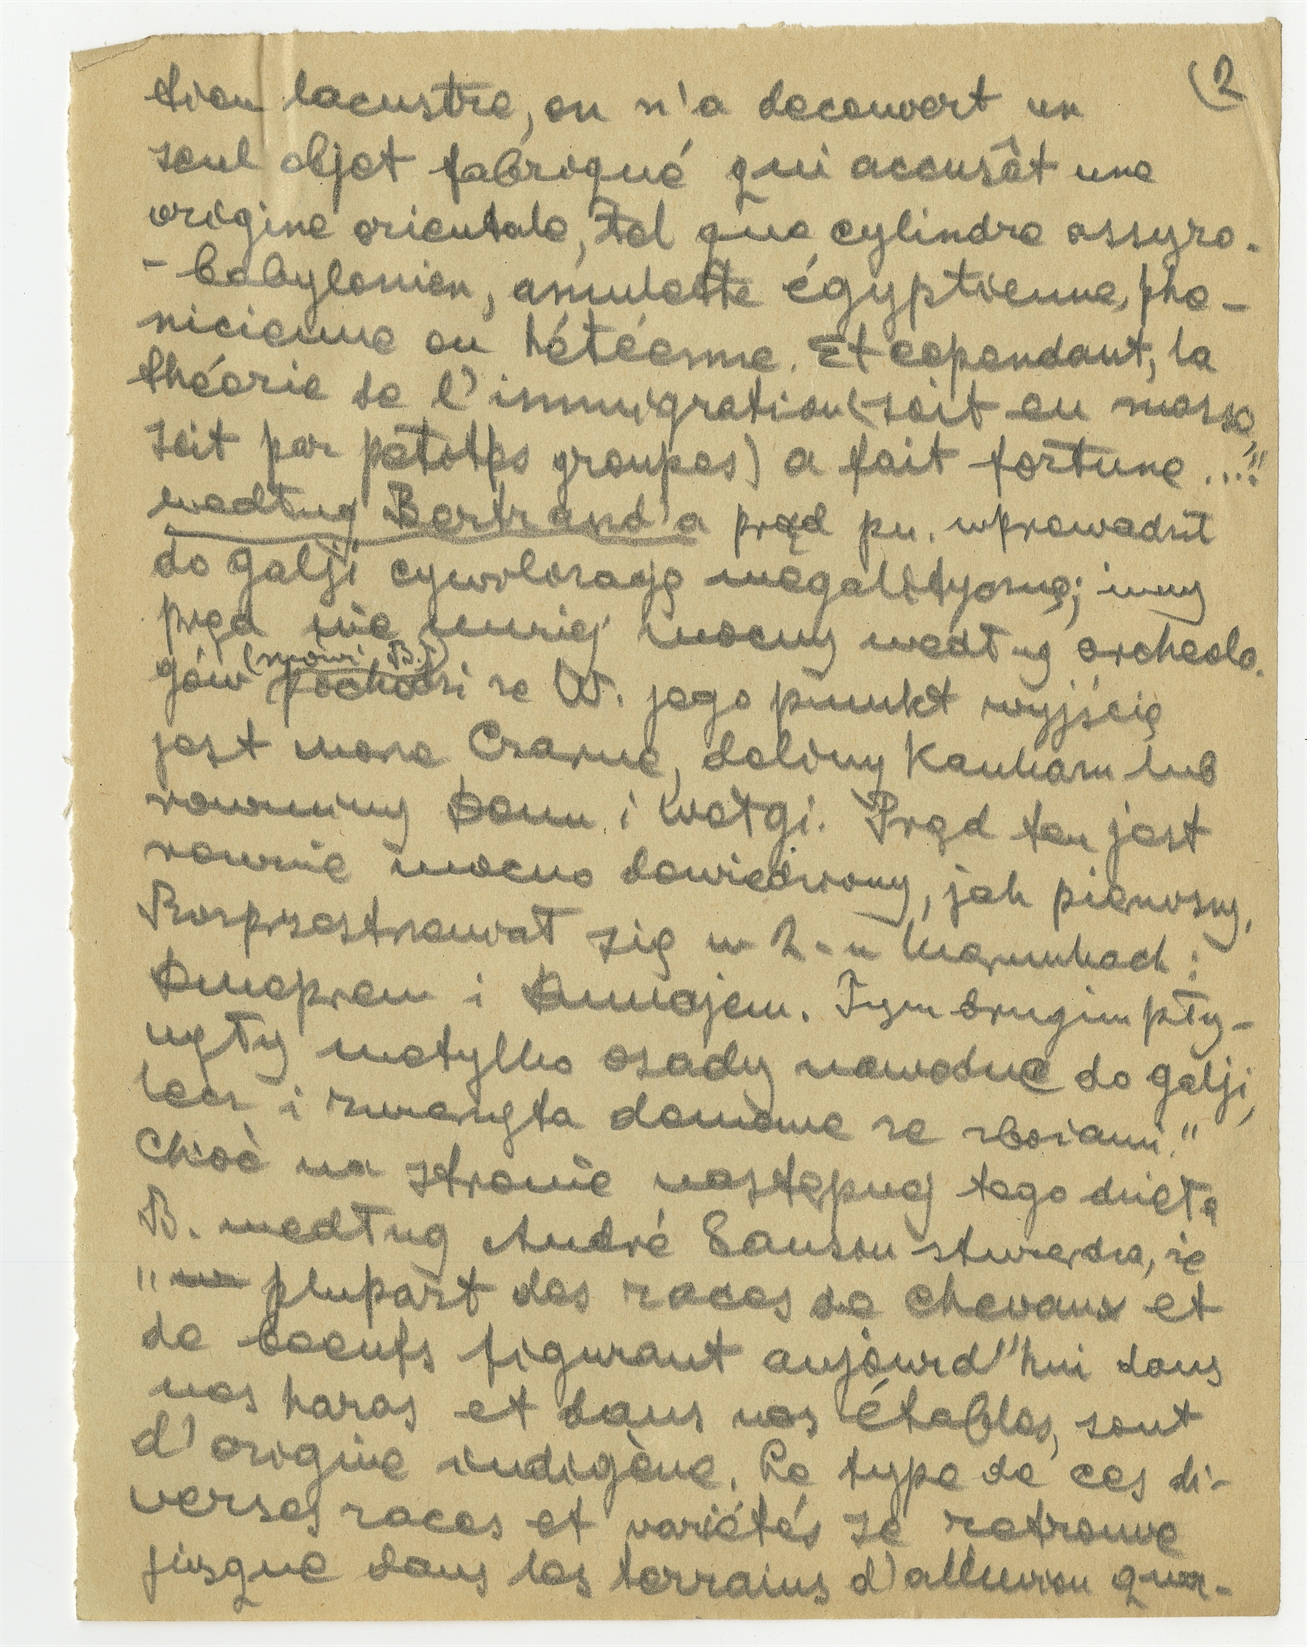 (2
tion lacustre, on n'a decouvert un
seul objet fabriqué qui accusât une
origine orientale, tel que cylindre assyro-
-babylonien, amulette égyptienne, phe-
nicienne ou hétéenne. Et cependant, la
théorie de l'immigration (soit en masse,
soit par petits groupes) a fait fortune ...."
według Bertrand'a prąd pn. wprowadził
do Galji cywilizację megalityczną; inny
prąd nie mniej mocny według archeolo-
gów (mówi B.) pochodzi ze W. jego punkt wyjścia
jest morze Czarne, doliny Kaukazu lub
rowniny Donu i Wołgi. Prąd ten jest
rownie mocno dowiedziony, jak pierwszy.
Rozprzestrzeniał się w 2-u kierunkach:
Dnieprem i Dunajem. Tym drugim pły-
nęły nietylko osady nawodne do Galji,
lecz i zwierzęta domowe ze zbożami."
Choć na stronie następnej tego dzieła
B. według André Sanson stwierdza, że
" plupart des races de chevaux et
de boeufs figurant aujourd'hui dans
nos haras et dans nos étables, sont
d'origine indigène. Le type de ces di-
verses races et variétés se retrouve
jusque dans les terrains d'alluvion qua-